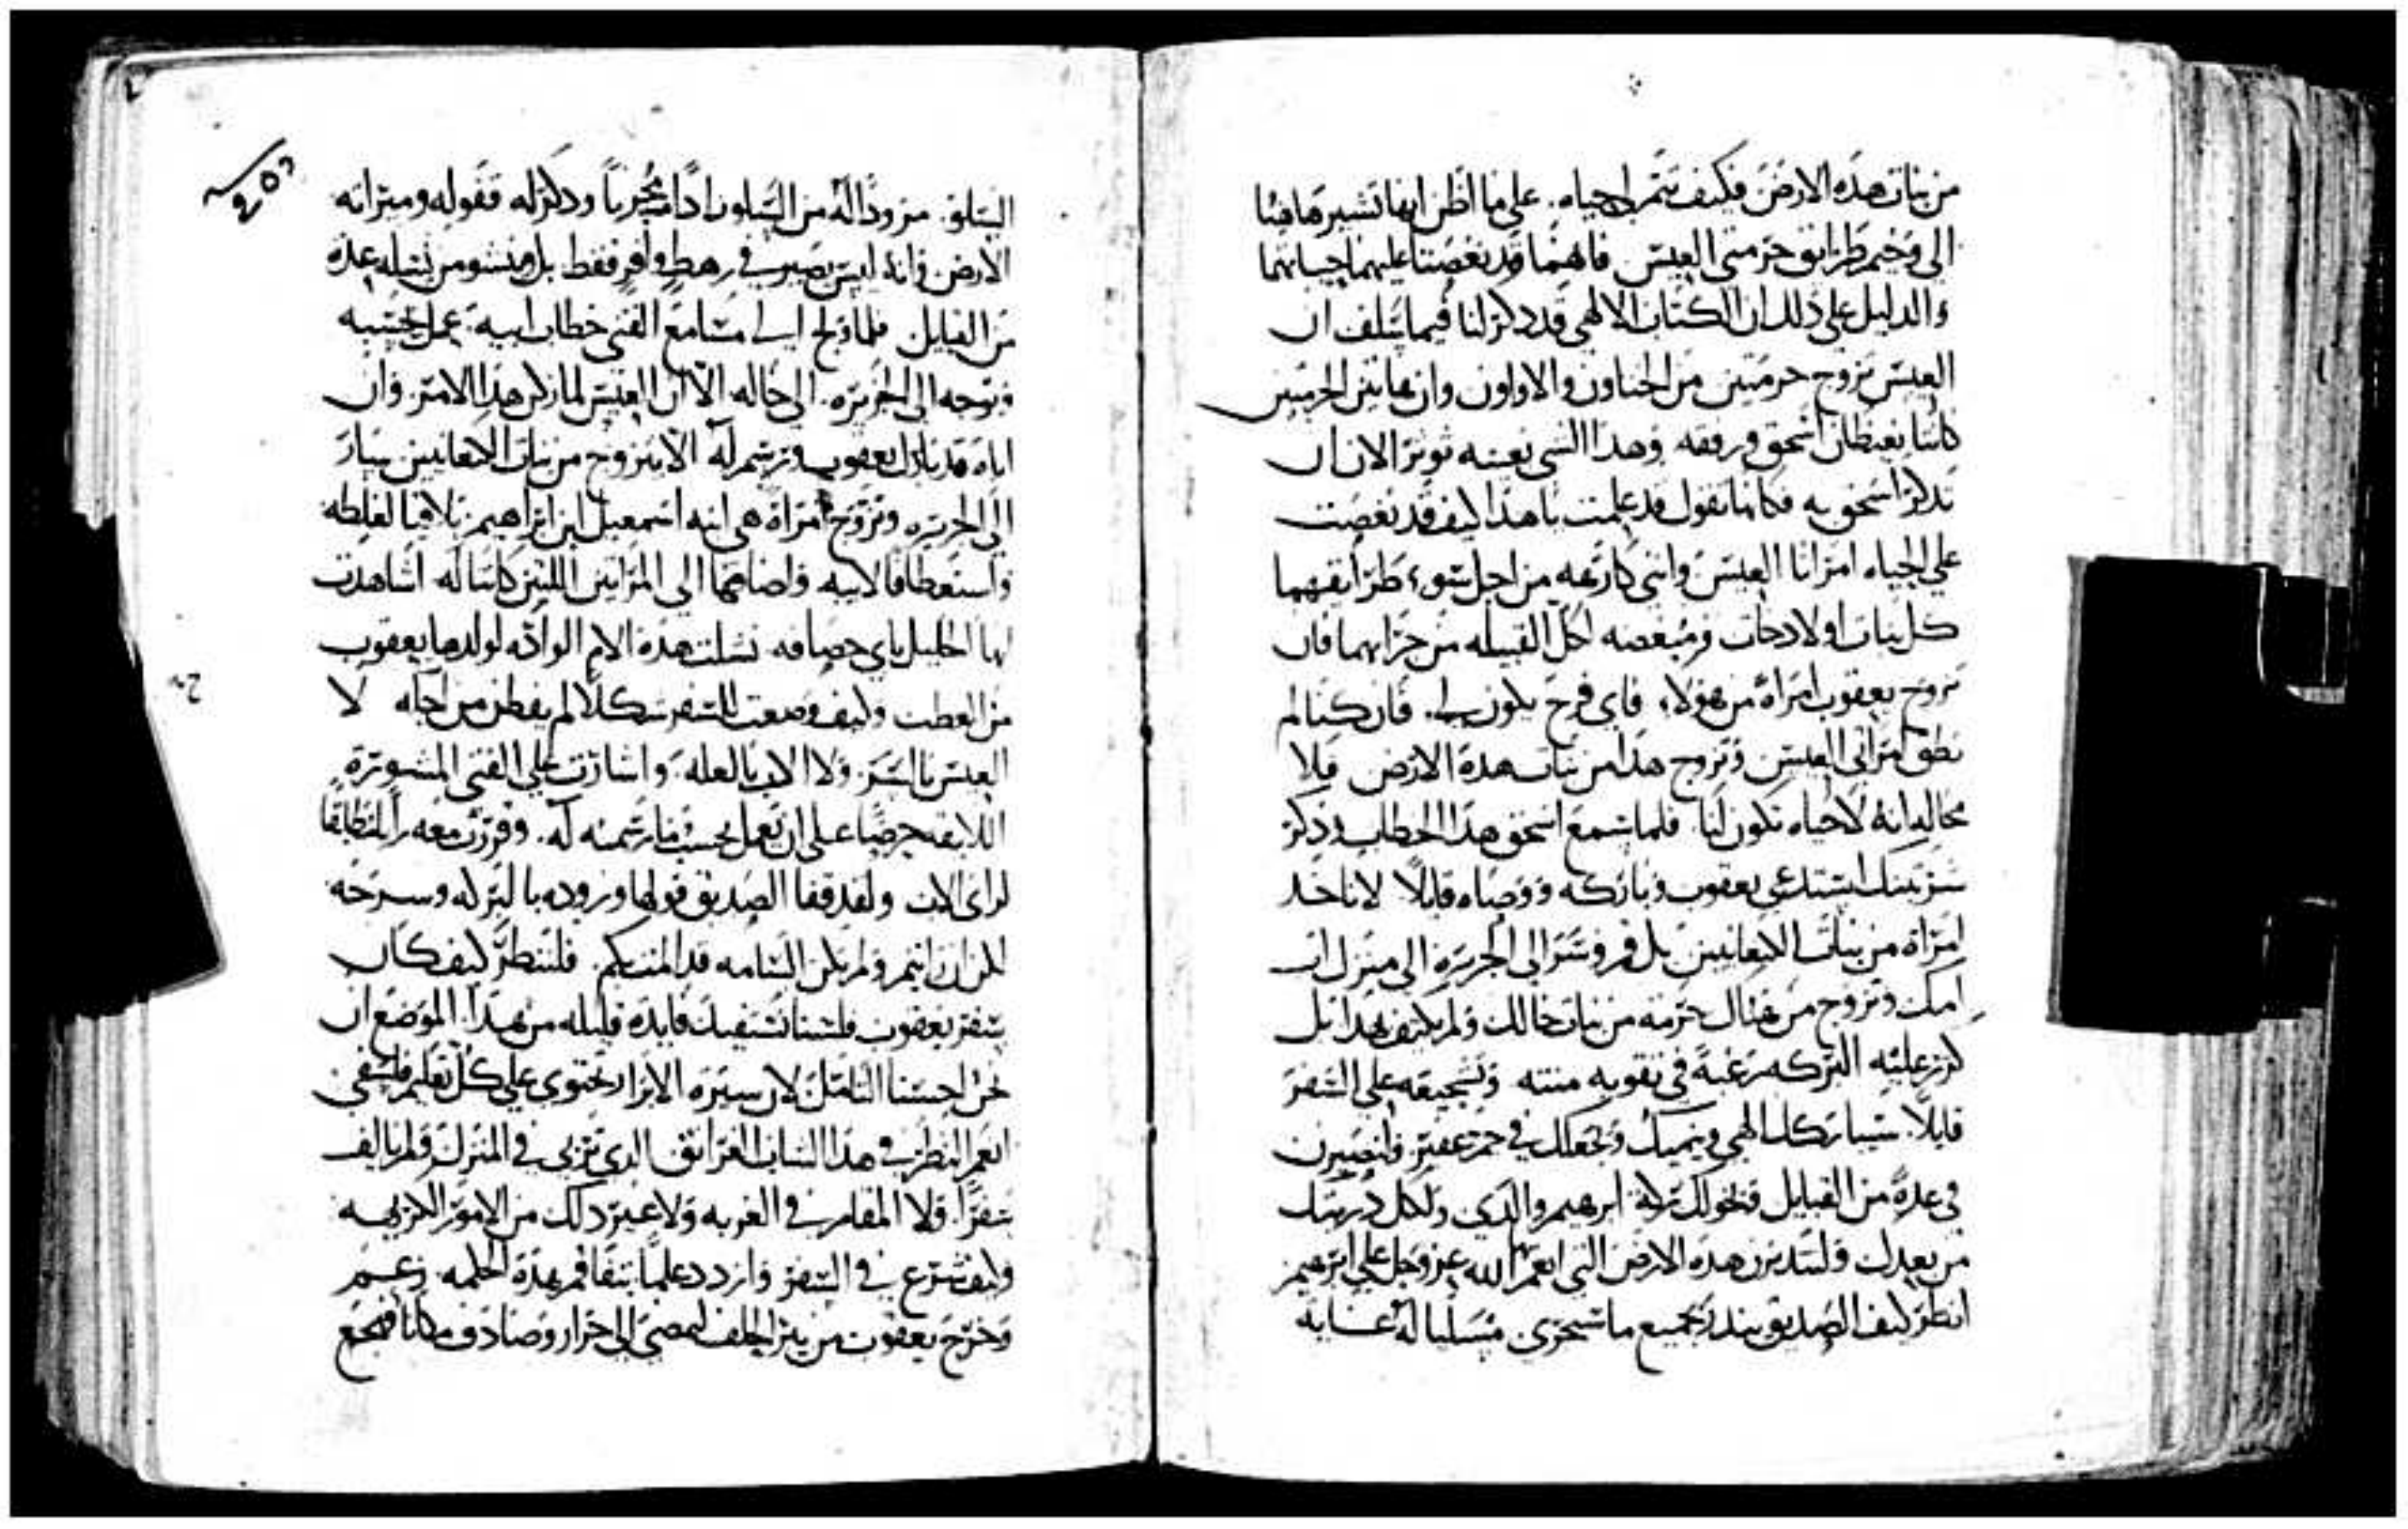 من بنات هذه الارض فكيف تتم لي حياه. على ما اظن انها تشير هاهنا
الى وخيم طرايق حرمتي العيس فانهما قد نغصتا عليهما حياتهما
والدليل على ذلك ان الكتاب الالهي قد ذكر لنا فيما سلف ان
العيس تزوج حرمتين من الحثاون والاواون وان هاتين الحرمتين
كانتا يغيظان اسحق ورفقه وهذا الشي بعينه توثر الان ان
تذكر اسحق به فكانها تقول قد علمت يا هذا كيف قد نغصت
على الحياه امراتا العيس وانني كارهه من اجل سوء طرايقهما
كل بنات اولاد حات ومبغضه لكل القبيله من جرايهما فان
تزوج يعقوب امراة من هولاء فاي فرح يكون لي. فان كنا لم
نطق امراتي العيس وتزوج هذا من بنات هذه الارض فلا
محاله انه لا حياه تكون لنا فلما سمع اسحق هذا الخطاب وذكر
استدعى يعقوب وباركه ووصاه قايلاً لا تاخد
امراة من بنات الكنعانيين بل قم وسر الى الجزيره الى منزل اب
امك وتزوج من هناك حرمه من بنات خالك ولم يكتف بهذا بل
كرر عليه البركه رغبة في تقويه منته وتشجيعه على السفر
قايلاً. سيباركك الهي وينميك ويجعلك في جم غفير وانتصيرن
في عدة من القبايل ويخولك بركة ابرهيم والدي ولكل ذريتك
من بعدك ولتدبرن هذه الارض التي انعم بها الله عز وجل على ابرهيم
انظر كيف الصديق ينذر بجميع ما سيجري مسلياً له غاية
السلو. مزوداً له من السلون زاداً محرباً وذكر له قفوله وميراثه
الارض وانه ليس يصير في رهط وافر فقط بل وينشو من نسله عدة
من القبايل فلما ولج الي مسامع الفتى خطاب ابيه عمل بحسبه
وتوجه الى الجزيره. الى خاله. الا ان العيس لما زكن هذا الامر. وان
اباه قد بارك يعقوب ورسم له الا يتزوج من بنات الكنعانيين سار
الى الجزيره وتزوج امراة هي ابنه اسمعيل ابن ابراهيم تلافياً لغلطه
واستعطافاً لابيه واضافها الى المراتين اللتين كانتا له اشاهدت
ايها الخليل باي حصافه نشلت هذه الام الوادّه لولدها يعقوب
من العطب وكيف وضعت للسفر شكلاً لم يفطن من اجله لا
العيس بالسر. ولا الاب بالعله. واشارت على الفتى المشورة
اللايقه حرصاً على ان يعمل بحسب ما رسمته له. وقررت معه راياً مطابقاً
لراي الاب ولقد قفا الصديق قولها وزوده بالبركه وسرحه
فلننظر كيف كان
سفر يعقوب فلسنا نستفيد فايدة قليله من هذا الموضع ان
نحن احسنا التامل لان سيرة الابرار تحتوي على كل تعليم فلسفي
انعم النظر في هذا الشاب الغرانق الذي تربى في المنزل ولم يالف
سفراً. ولا المقام في الغربه ولا غير ذلك من الامور الكريهه
وكيف شرع في السفر وازدد علماً بتفاقم هذه الحكمه زعم
وخرج يعقوب من بير الحلف ليمضي الى حران وصادف مكاناً فهجع